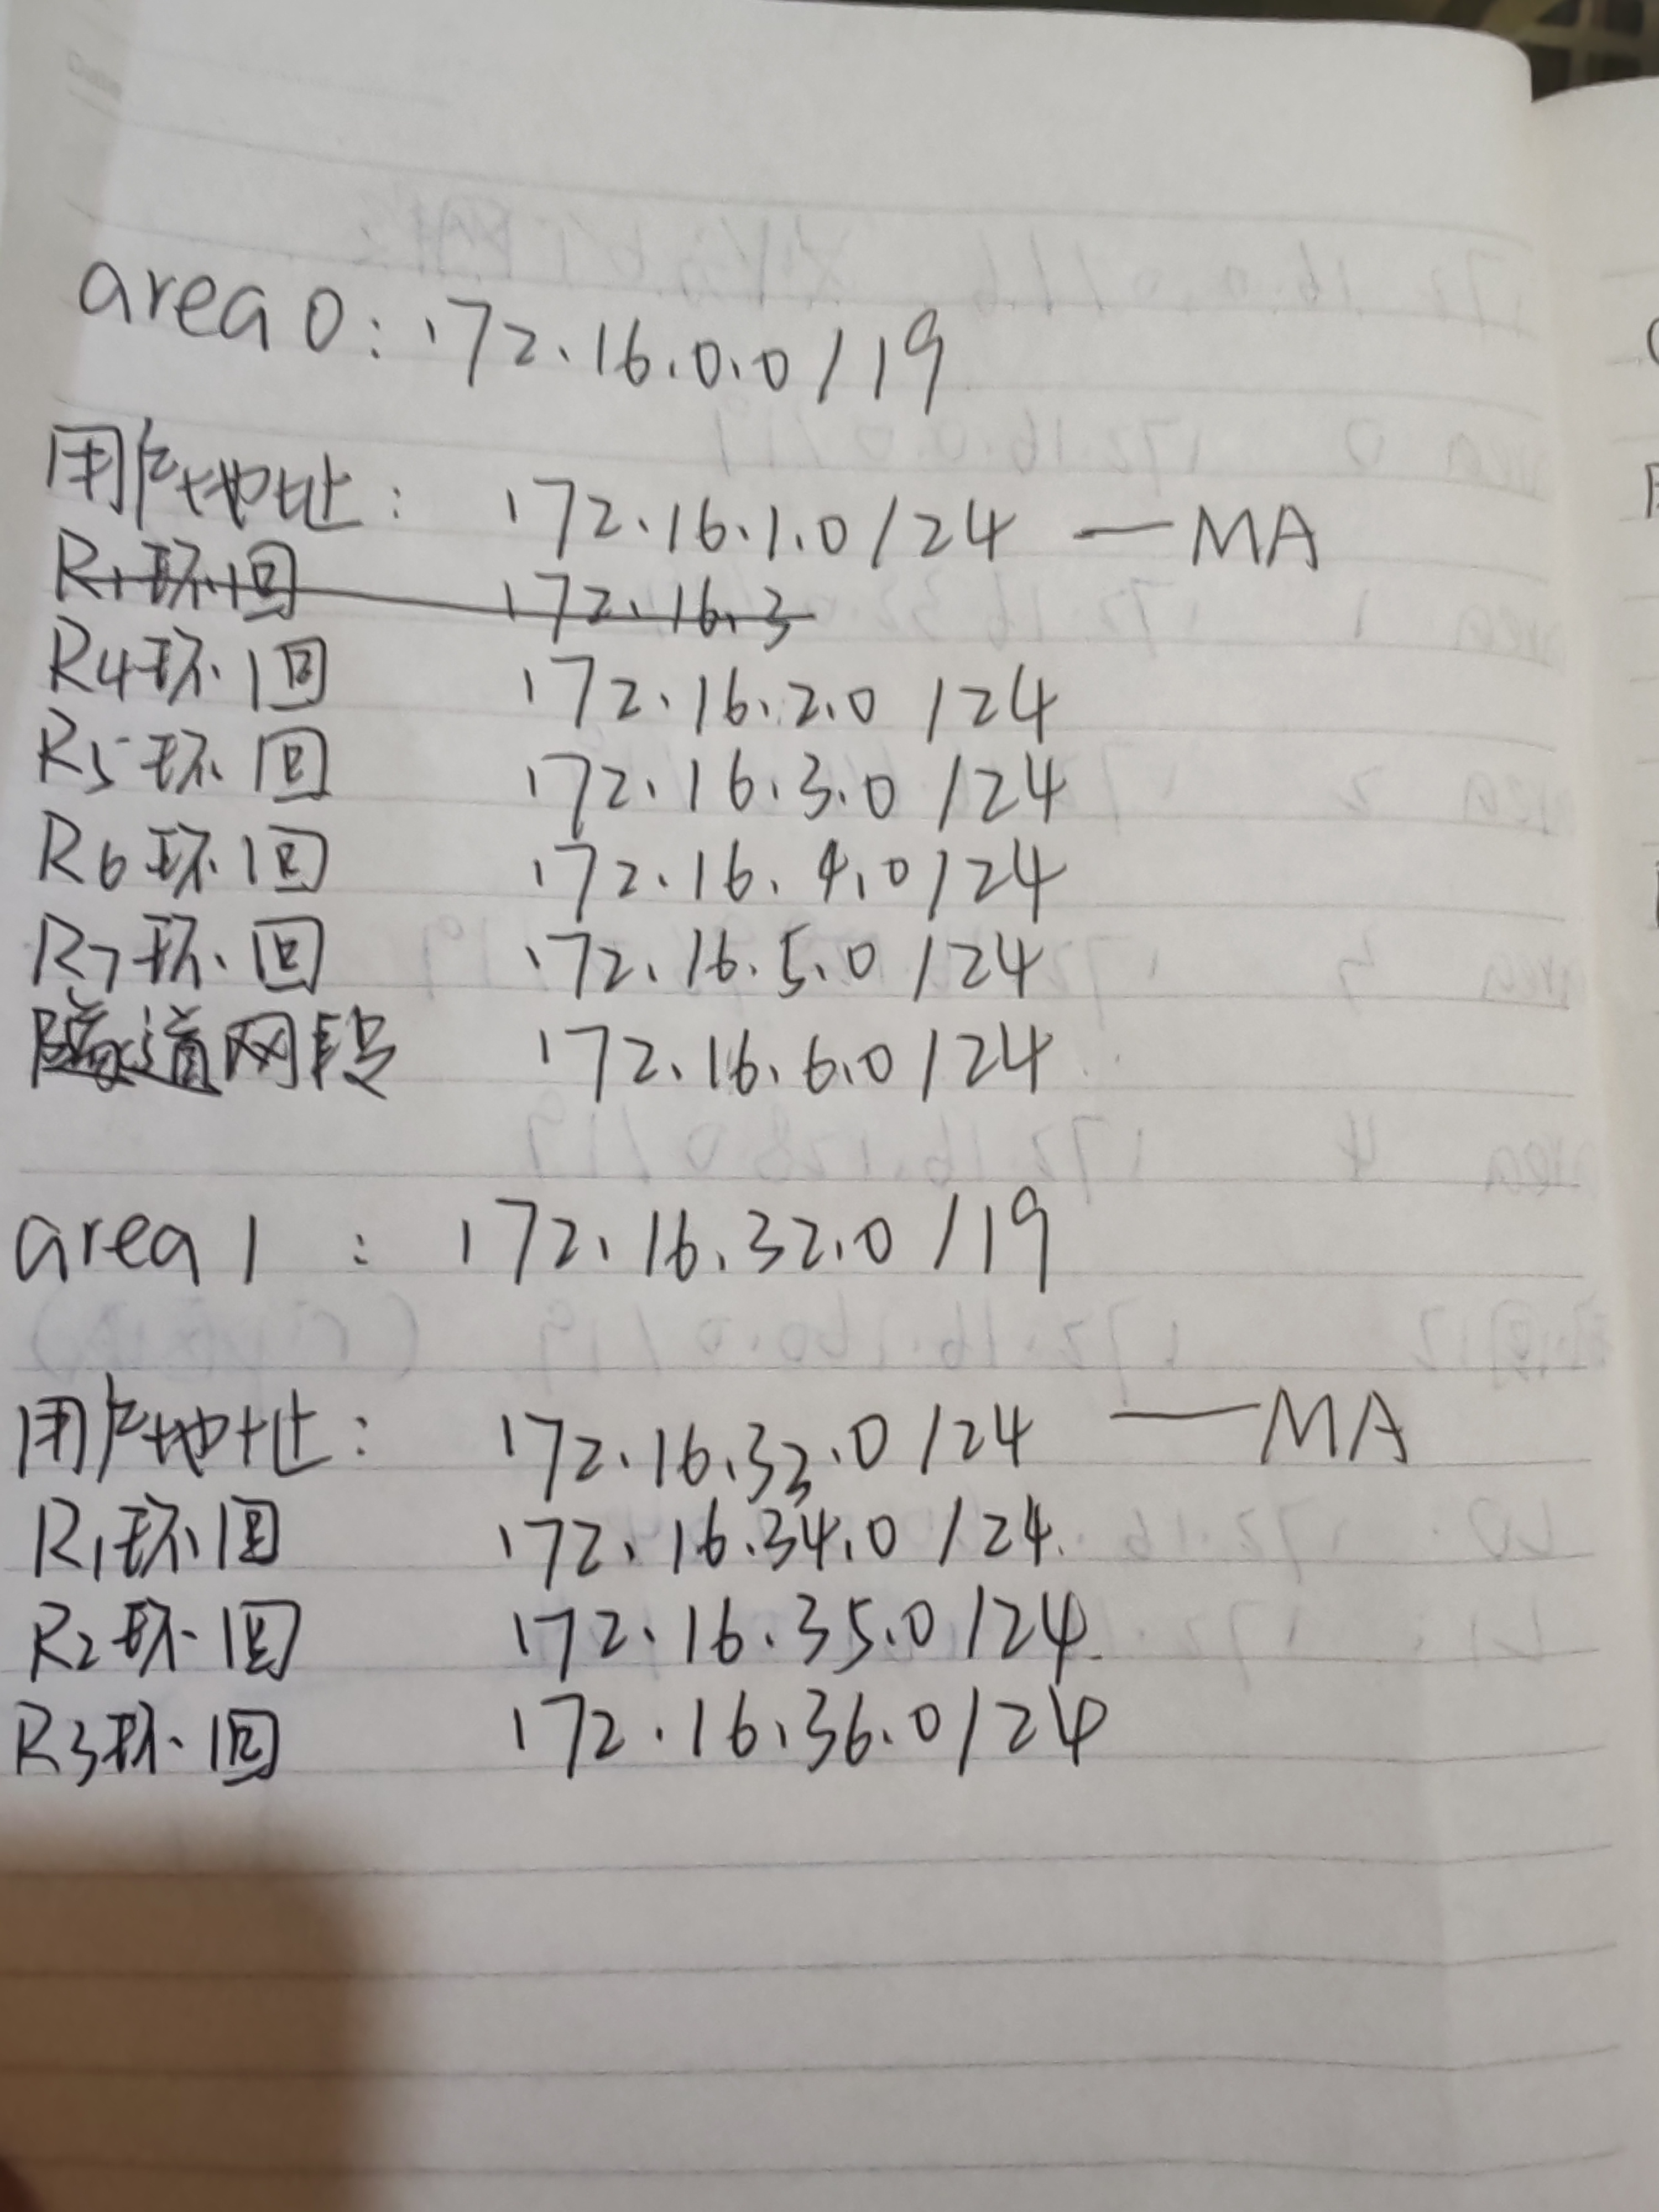 area 0: 172.16.0.0/19
用户地址: 172.16.1.0/24 — MA
R1环回 172.16.3
R4环回 172.16.2.0/24
R5环回 172.16.3.0/24
R6环回 172.16.4.0/24
R7环回 172.16.5.0/24
隧道网段 172.16.6.0/24
area 1: 172.16.32.0/19
用户地址: 172.16.33.0/24 — MA
R1环回 172.16.34.0/24
R2环回 172.16.35.0/24
R3环回 172.16.36.0/24